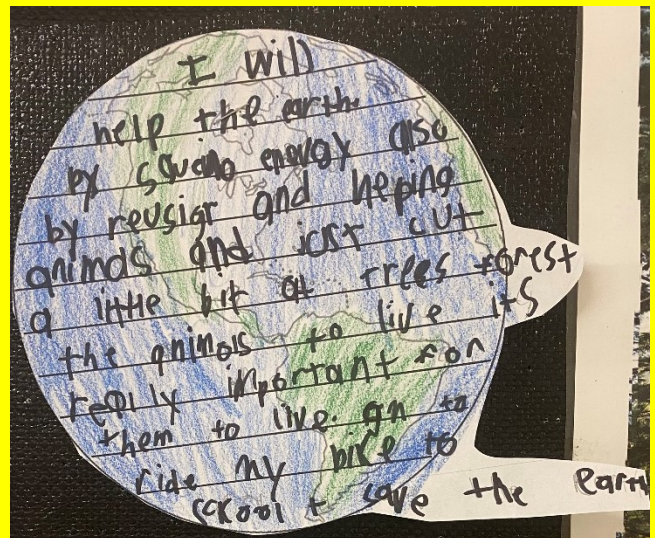 I will
help the earth
by saving energy also
by reusigr and heping
animals and just cut
a little bit at trees forest
the animals to live its
reqlly important for
them to live. gn to
ride my bike to
sckool t save the earth